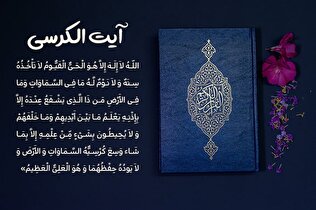 آیت الکرسی
اللَّهُ لَا إِلَهَ إِلَّا هُوَ الْحَيُّ الْقَيُّومُ لَا تَأْخُذُهُ
سِنَةٌ وَلَا نَوْمٌ لَّهُ مَا فِي السَّمَاوَاتِ وَمَا
فِي الْأَرْضِ مَن ذَا الَّذِي يَشْفَعُ عِنْدَهُ إِلَّا
بِإِذْنِهِ يَعْلَمُ مَا بَيْنَ أَيْدِيهِمْ وَمَا خَلْفَهُمْ
وَلَا يُحِيطُونَ بِشَيْءٍ مِّنْ عِلْمِهِ إِلَّا بِمَا
شَاءَ وَسِعَ كُرْسِيُّهُ السَّمَاوَاتِ وَالْأَرْضَ وَ
لَا يَئُودُهُ حِفْظُهُمَا وَ هُوَ الْعَلِيُّ الْعَظِيمُ»